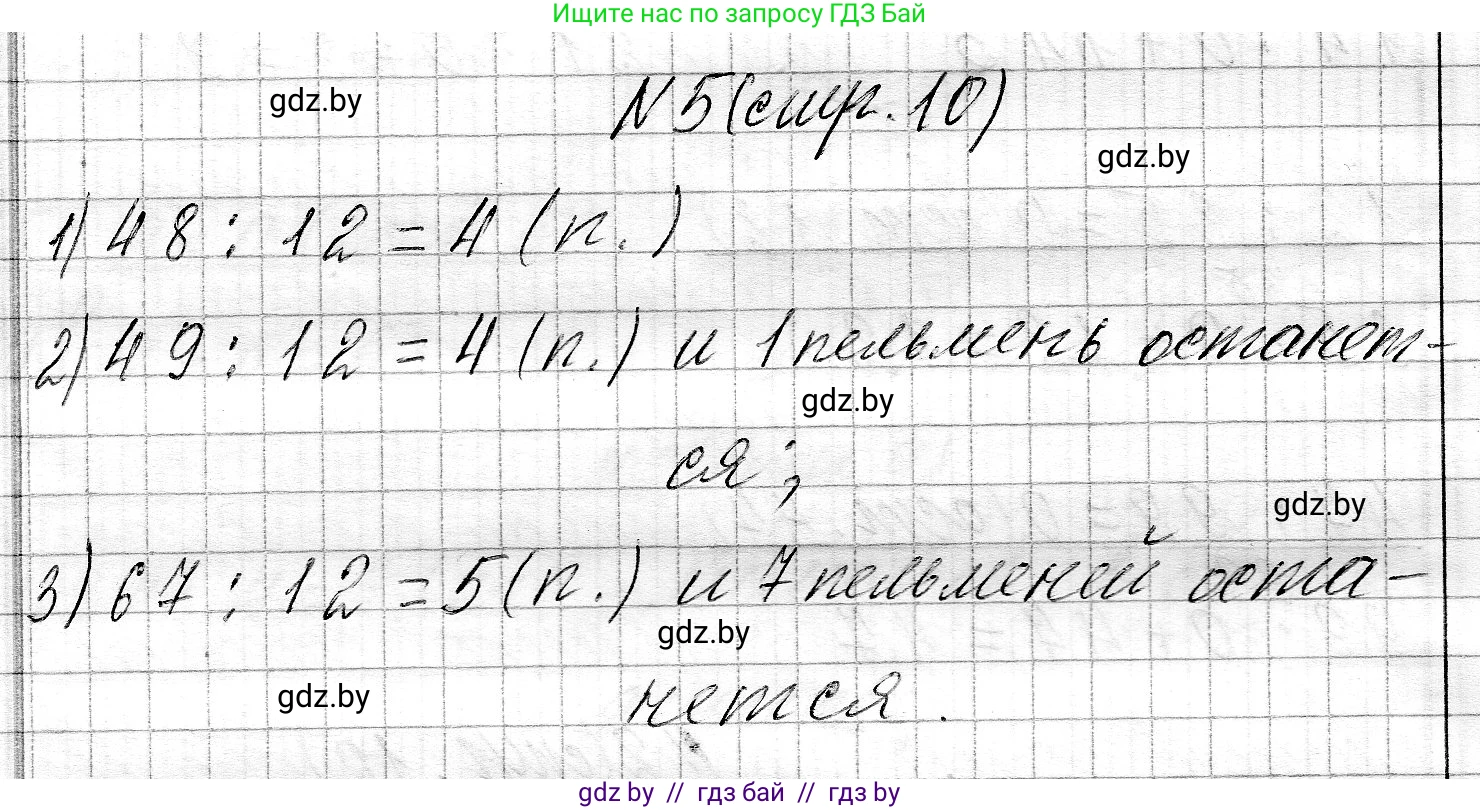 Ищите нас по запросу ГДЗ Бай
gdz.by
N 5 (стр. 10)
gdz.by
1) 48 : 12 = 4 (п.)
2) 49 : 12 = 4 (п.) и 1 пельмень останет-
gdz.by
ся;
gdz.by
3) 67 : 12 = 5 (п.) и 7 пельменей оста-
gdz.by
gdz.by
нется.
gdz.by // гдз бай // гдз by